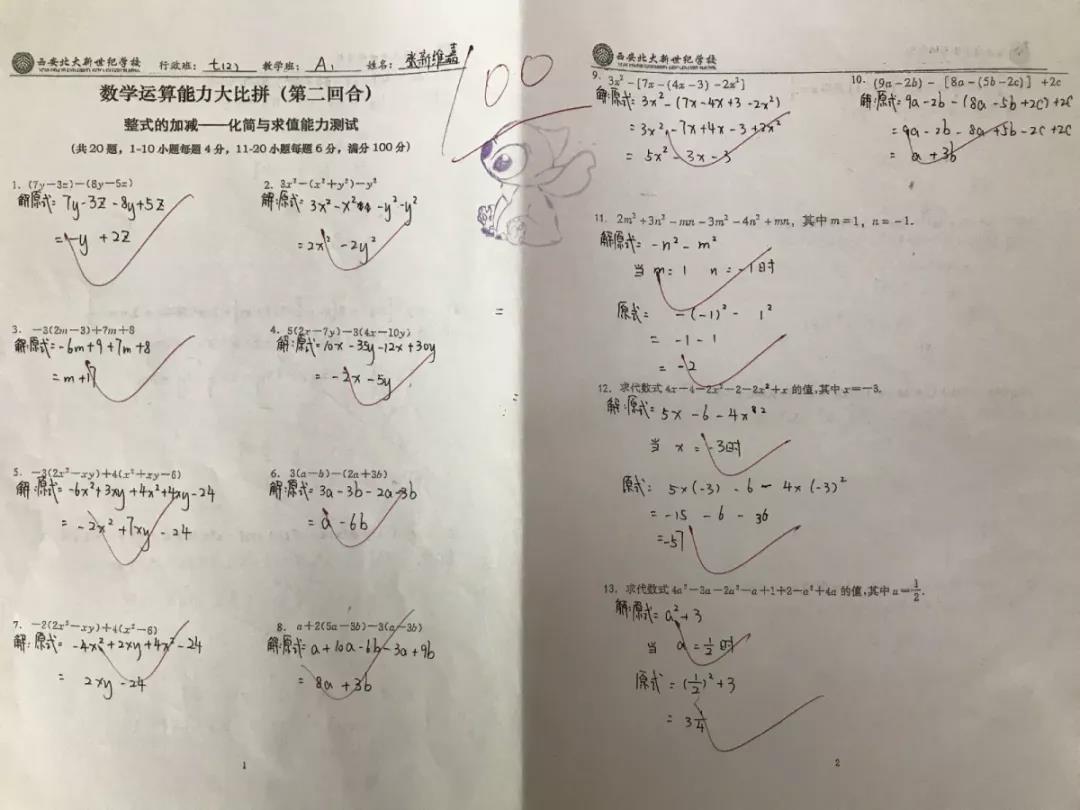 西安北大新世纪学校 行政班：七(2) 教学班：A1 姓名：张新维嘉
100
数学运算能力大比拼（第二回合）
整式的加减——化简与求值能力测试
（共20题，1-10小题每题4分，11-20小题每题6分，满分100分）
1. (7y-3z)-(8y-5z)
解:原式=7y-3z-8y+5z
=-y+2z
2. 3x²-(x²+y²)-y²
解:原式=3x²-x²-y²-y²
=2x²-2y²
3. -3(2m-3)+7m+8
解:原式=-6m+9+7m+8
=m+17
4. 5(2x-7y)-3(4x-10y)
解:原式=10x-35y-12x+30y
=-2x-5y
5. -3(2x²-xy)+4(x²+xy-6)
解:原式=-6x²+3xy+4x²+4xy-24
=-2x²+7xy-24
6. 3(a-b)-(2a+3b)
解:原式=3a-3b-2a-3b
=a-6b
7. -2(2x²-xy)+4(x²-6)
解:原式=-4x²+2xy+4x²-24
= 2xy-24
8. a+2(5a-3b)-3(a-3b)
解:原式=a+10a-6b-3a+9b
=8a+3b
1
西安北大新世纪学校
9. 3x²-[7x-(4x-3)-2x²]
解:原式=3x²-(7x-4x+3-2x²)
=3x²-7x+4x-3+2x²
=5x²-3x-3
10. (9a-2b)-[8a-(5b-2c)]+2c
解:原式=9a-2b-(8a-5b+2c)+2c
=9a-2b-8a+5b-2c+2c
=a+3b
11. 2m²+3n²-mn-3m²-4n²+mn，其中m=1，n=-1.
解:原式=-n²-m²
当 m=1 n=-1时
原式= -(-1)²-1²
= -1-1
=-2
12. 求代数式4x-4-2x²-2-2x²+x的值,其中x=-3.
解:原式=5x-6-4x²
当 x=-3时
原式= 5×(-3)-6-4×(-3)²
=-15-6-36
=-57
13. 求代数式4a²-3a-2a²-a+1+2-a²+4a的值,其中a=1/2.
解:原式=a²+3
当 a=1/2时
原式=(1/2)²+3
=3 1/4
2